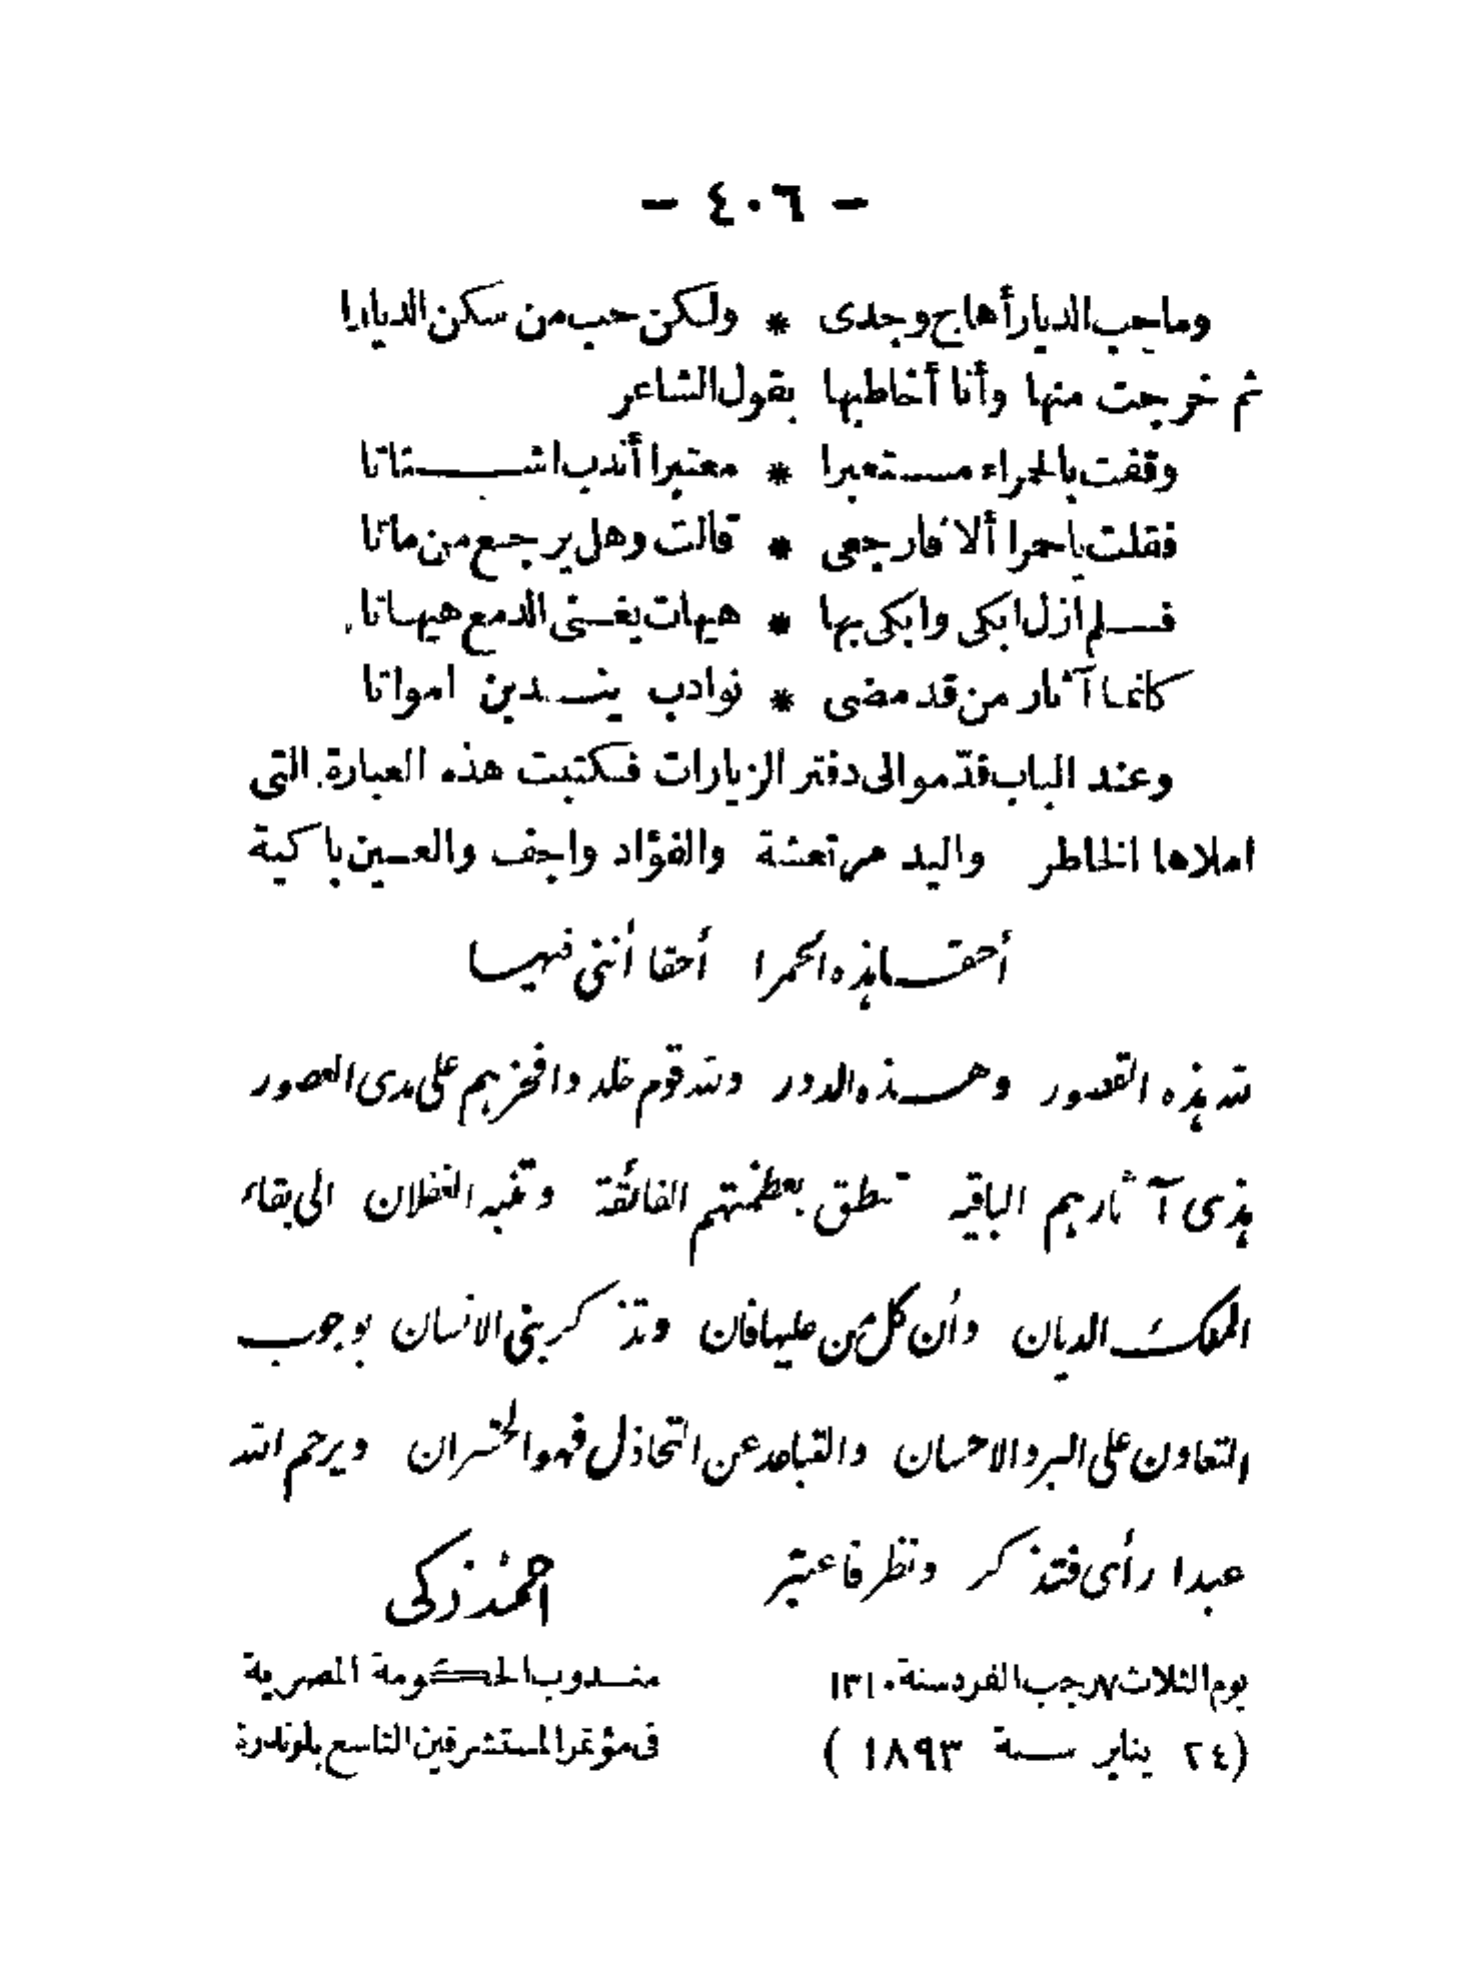 — ٤٠٦ —
وماحب الديار أهاج وجدى * ولكن حب من سكن الديارا
ثم خرجت منها وأنا أخاطبها بقول الشاعر
وقفت بالحراء مستعبرا * معتبرا أندب اشتاتا
فقلت ياحمرا ألا فارجعى * قالت وهل يرجع من ماتا
فلم ازل ابكى وابكى بها * هيهات يغنى الدمع هيهاتا
كانما آثار من قد مضى * نوادب يندبن امواتا
وعند الباب قدّموالى دفتر الزيارات فكتبت هذه العبارة التى
املاها الخاطر واليد مرتعشة والفؤاد واجف والعين باكية
أحقا هذه الحمرا أحقا أننى فيها
لله هذه القصور وهذه الدور ولله قوم خلدوا فخرهم على مدى العصور
هذى آثارهم الباقيه تنطق بعظمتهم الفائقة وتنبه الغفلان الى بقاء
الملك الديان وأن كل من عليها فان وتذكر بنى الانسان بوجوب
التعاون على البر والاحسان والتباعد عن التخاذل فهو الخسران ويرحم الله
عبدا رأى فتذكر ونظر فاعتبر احمد زكى
يوم الثلاث ٧ رجب الفرد سنة ١٣١٠ مندوب الحكومة المصرية
(٢٤ يناير سنة ١٨٩٣ ) فى مؤتمر المستشرقين التاسع بلوندرة